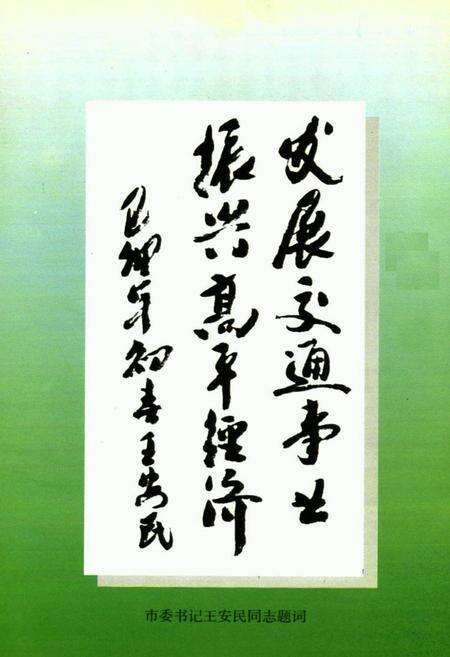 发展交通事业
振兴高平經济
己卯年初春王安民
市委书记王安民同志题词